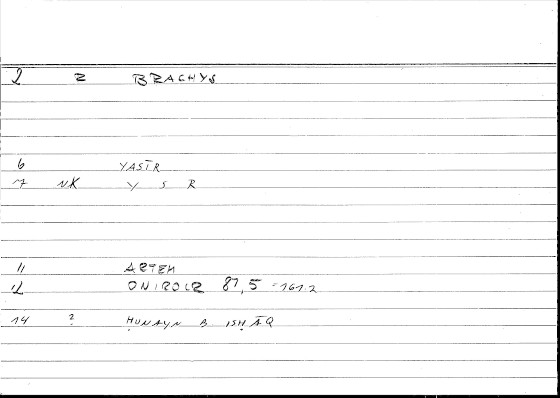 2 R BRACHYS
6 YASĪR
7 NK Y S R
11 ARTEM
12 ONIROCR 87,5 = 161.2
14 ? ḤUNAYN B ISḤĀQ